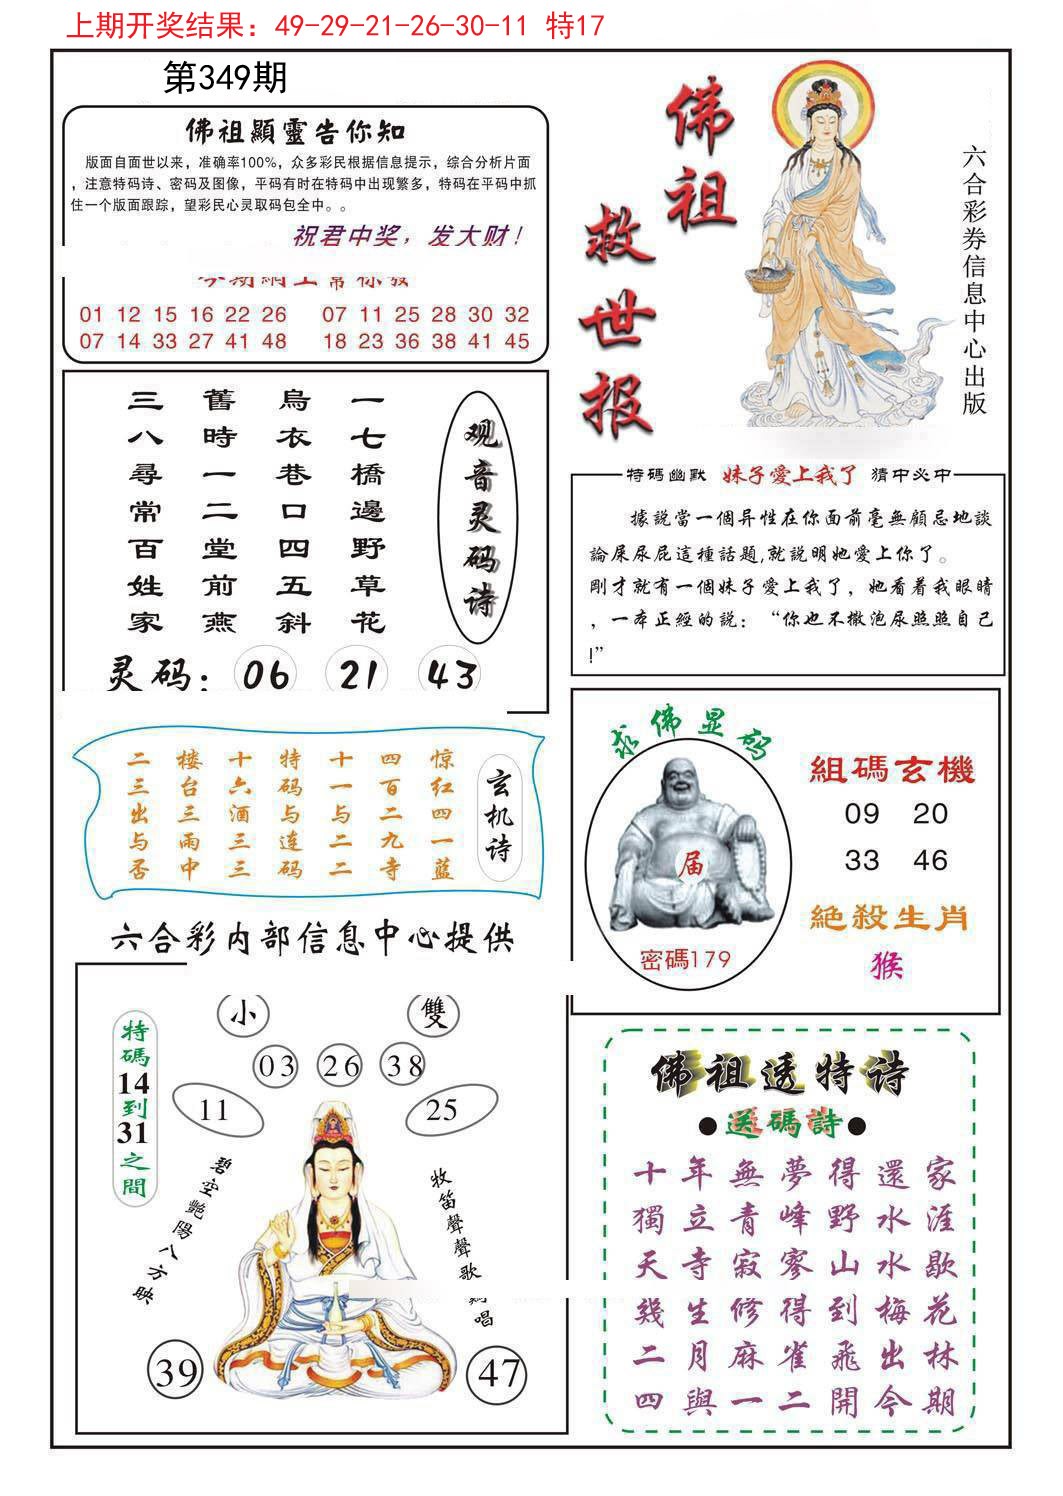 上期开奖结果：49-29-21-26-30-11 特17
第349期
佛祖顯靈告你知
版面自面世以来，准确率100%，众多彩民根据信息提示，综合分析片面
，注意特码诗、密码及图像，平码有时在特码中出现繁多，特码在平码中抓
住一个版面跟踪，望彩民心灵取码包全中。。
祝君中奖，发大财！
01 12 15 16 22 26 07 11 25 28 30 32
07 14 33 27 41 48 18 23 36 38 41 45
佛祖
救世报
六合彩券信息中心出版
观音灵码诗
一七橋邊野草花
烏衣巷口四五斜
舊時一二堂前燕
三八尋常百姓家
灵码：06 21 43
特碼幽默 妹子愛上我了 猜中必中
據說當一個异性在你面前毫無顧忌地談
論屎尿屁這種話題,就說明她愛上你了。
剛才就有一個妹子愛上我了，她看着我眼睛
，一本正經的説：“你也不撒泡尿照照自己
!”
玄机诗
惊红四一蓝
四百二九寺
十一与二二
特码与连码
十六酒三三
楼台三雨中
二三出与否
求佛显码
届
密碼179
組碼玄機
09 20
33 46
絶殺生肖
猴
六合彩内部信息中心提供
特碼14到31之間
小
雙
03 26 38
11
25
碧空艷陽八方映
牧笛聲聲歌
唱
39
47
佛祖透特诗
●送碼詩●
十年無夢得還家
獨立青峰野水涯
天寺寂寥山水歇
幾生修得到梅花
二月麻雀飛出林
四與一二開今期